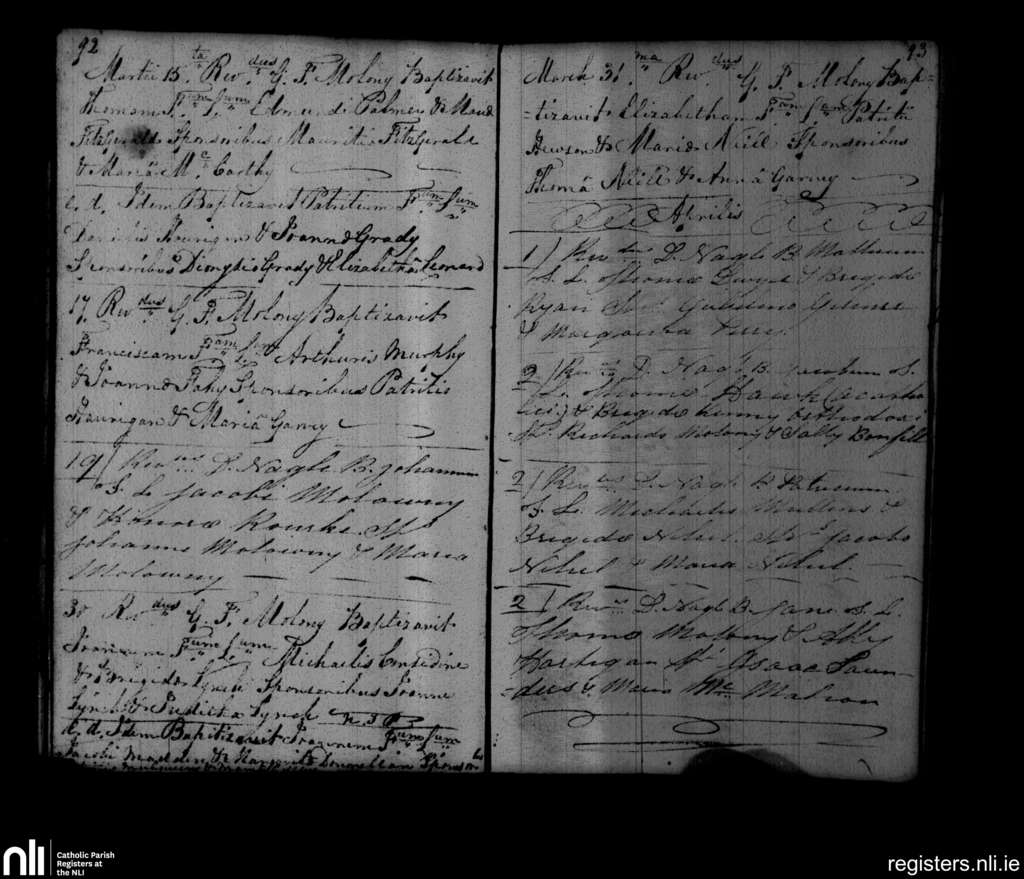 92
Martii 15.ta Rev.dus G. F. Molony Baptizavit
Thomam F.um L.um Edmundi Palmer &
FitzGerald Sponsoribus Mauritio FitzGerald
& Mariâ M.c Carthy
e. d. Idem Baptizavit Patritium F.um L.um
Danielis Hourigan & Joannæ Grady
Sponsoribus Dionysio Grady & Elizabethâ Leonard
17. Rev.dus G. F. Molony Baptizavit
Franciscam F.am L.am Arthuris Murphy
& Joannæ Fahy Sponsoribus Patritio
Hourigan & Mariâ Garvey
19/ Rev.us D. Nagle B. Johannem
F. L. Jacobi Molowny
& Honoræ Rourke Sp.s
Johanne Molowny & Maria
Molowny
30 Rev.dus G. F. Molony Baptizavit
Joannem F.um L.um Michaelis Considine
& Brigidæ Lynch Sponsoribus Joanne
Lynch & Judithâ Lynch
e. d. Idem Baptizavit Joannem F.um L.um
Jacobi Madden & Margaritæ Donnellan Sponsor
93
March 31.ma Rev.dus G. F. Molony Bap=
=tizavit Elizabetham F.am L.am Patritii
Hewson & Mariæ Neill Sponsoribus
Thomâ Neill & Annâ Garvey
Aprilis
1/ Rev.dus D. Nagle B. Matheum
F. L. Thomæ Dwyer & Brigidæ
Ryan Sp.s Gulielmo
& Margarita
2/ Rev.us D. Nagle B. Jacobum F.
L. Thomæ Hawk
& Brigidæ Kenny orthodoxi
Sp. Richardo Molony & Sally Bonfill
2/ Rev.us D. Nagle B. Patricium
F. L. Michaelis Mullins &
Brigidæ Nihil Sp.s Jacobo
Nihil & Maria Nihil
2/ Rev.us D. Nagle B. Jane F. L.
Thomæ Molony & Abby
Hartigan Sp.s Isaac Saun-
=ders & Maria Mc Mahon
nli
Catholic Parish
Registers at
the NLI
registers.nli.ie